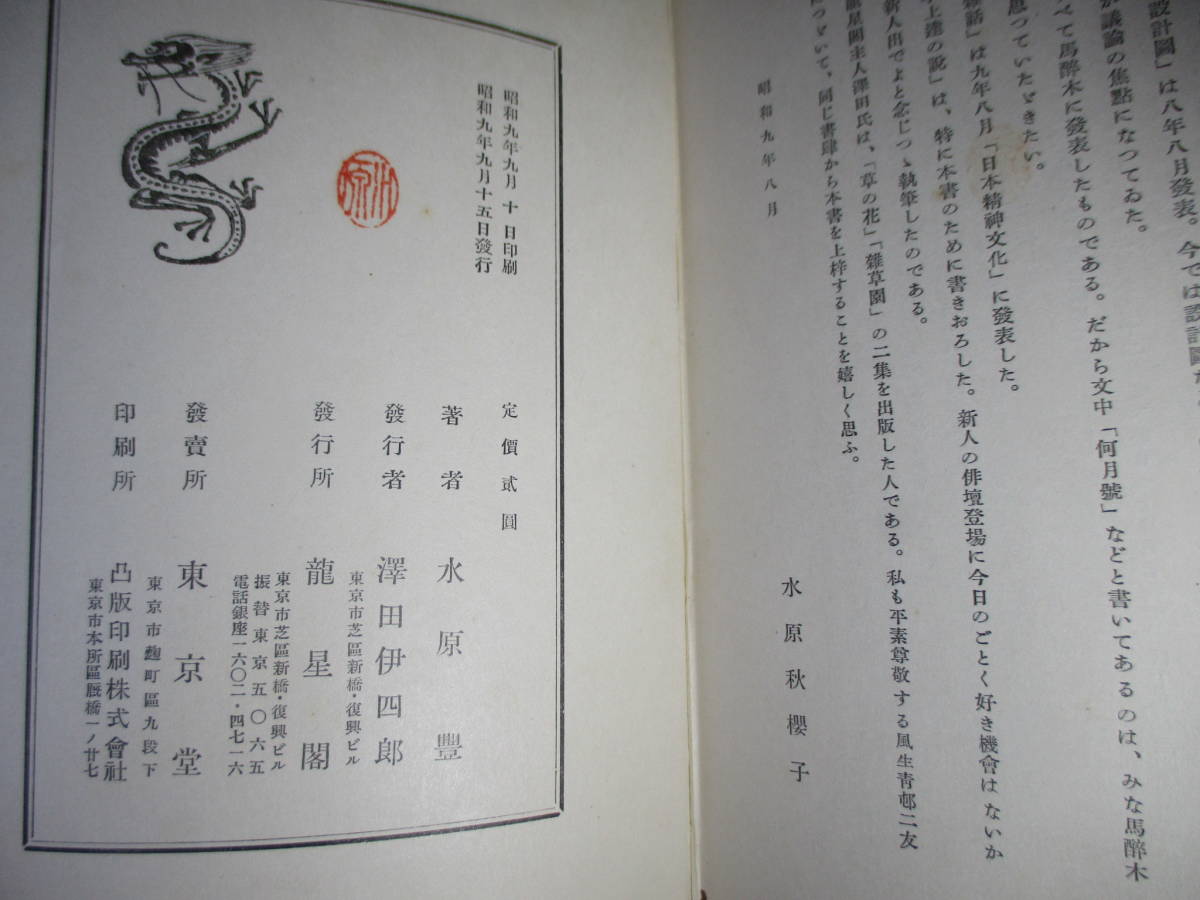 設計圖」は八年八月發表。今では設計圖
議論の焦點になつてゐた。
べて馬醉木に發表したものである。だから文中「何月號」などと書いてあるのは、みな馬醉木
思つていたゞきたい。
雜話」は九年八月「日本精神文化」に發表した。
上達の說」は、特に本書のために書きおろした。新人の俳壇登場に今日のごとく好き機會はないか
新人出でよと念じつゝ執筆したのである。
龍星閣主人澤田氏は、「草の花」「雜草園」の二集を出版した人である。私も平素尊敬する風生靑邨二友
につゞいて、同じ書肆から本書を上梓することを嬉しく思ふ。
昭和九年八月
水原秋櫻子
昭和九年九月十日印刷
昭和九年九月十五日發行
水原
定價貳圓
著者 水原豐
發行者 澤田伊四郎
東京市芝區新橋・復興ビル
發行所 龍星閣
東京市芝區新橋・復興ビル
振替東京五〇六五
電話銀座一六〇二・四七一六
發賣所 東京堂
東京市麴町區九段下
印刷所 凸版印刷株式會社
東京市本所區厩橋一ノ廿七